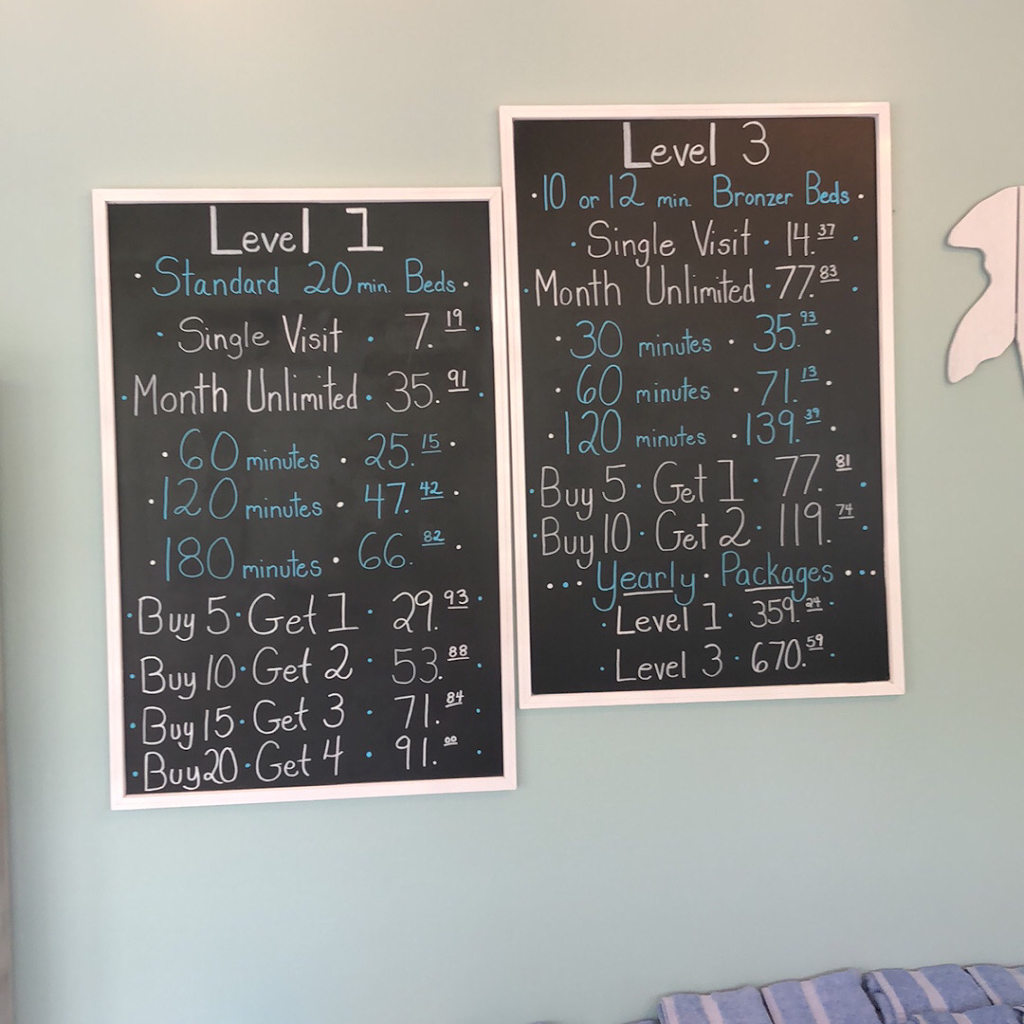 Level 1
· Standard 20 min. Beds ·
· Single Visit · 7.19 ·
· Month Unlimited · 35.91 ·
· 60 minutes · 25.15 ·
· 120 minutes · 47.42 ·
· 180 minutes · 66.82 ·
· Buy 5 · Get 1 · 29.93 ·
· Buy 10 · Get 2 · 53.88 ·
· Buy 15 · Get 3 · 71.84 ·
· Buy 20 · Get 4 · 91.00 ·
Level 3
· 10 or 12 min. Bronzer Beds ·
· Single Visit · 14.37 ·
· Month Unlimited · 77.83 ·
· 30 minutes · 35.93 ·
· 60 minutes · 71.13 ·
· 120 minutes · 139.39 ·
· Buy 5 · Get 1 · 77.81 ·
· Buy 10 · Get 2 · 119.74 ·
··· Yearly · Packages ···
· Level 1 · 359.24 ·
· Level 3 · 670.59 ·